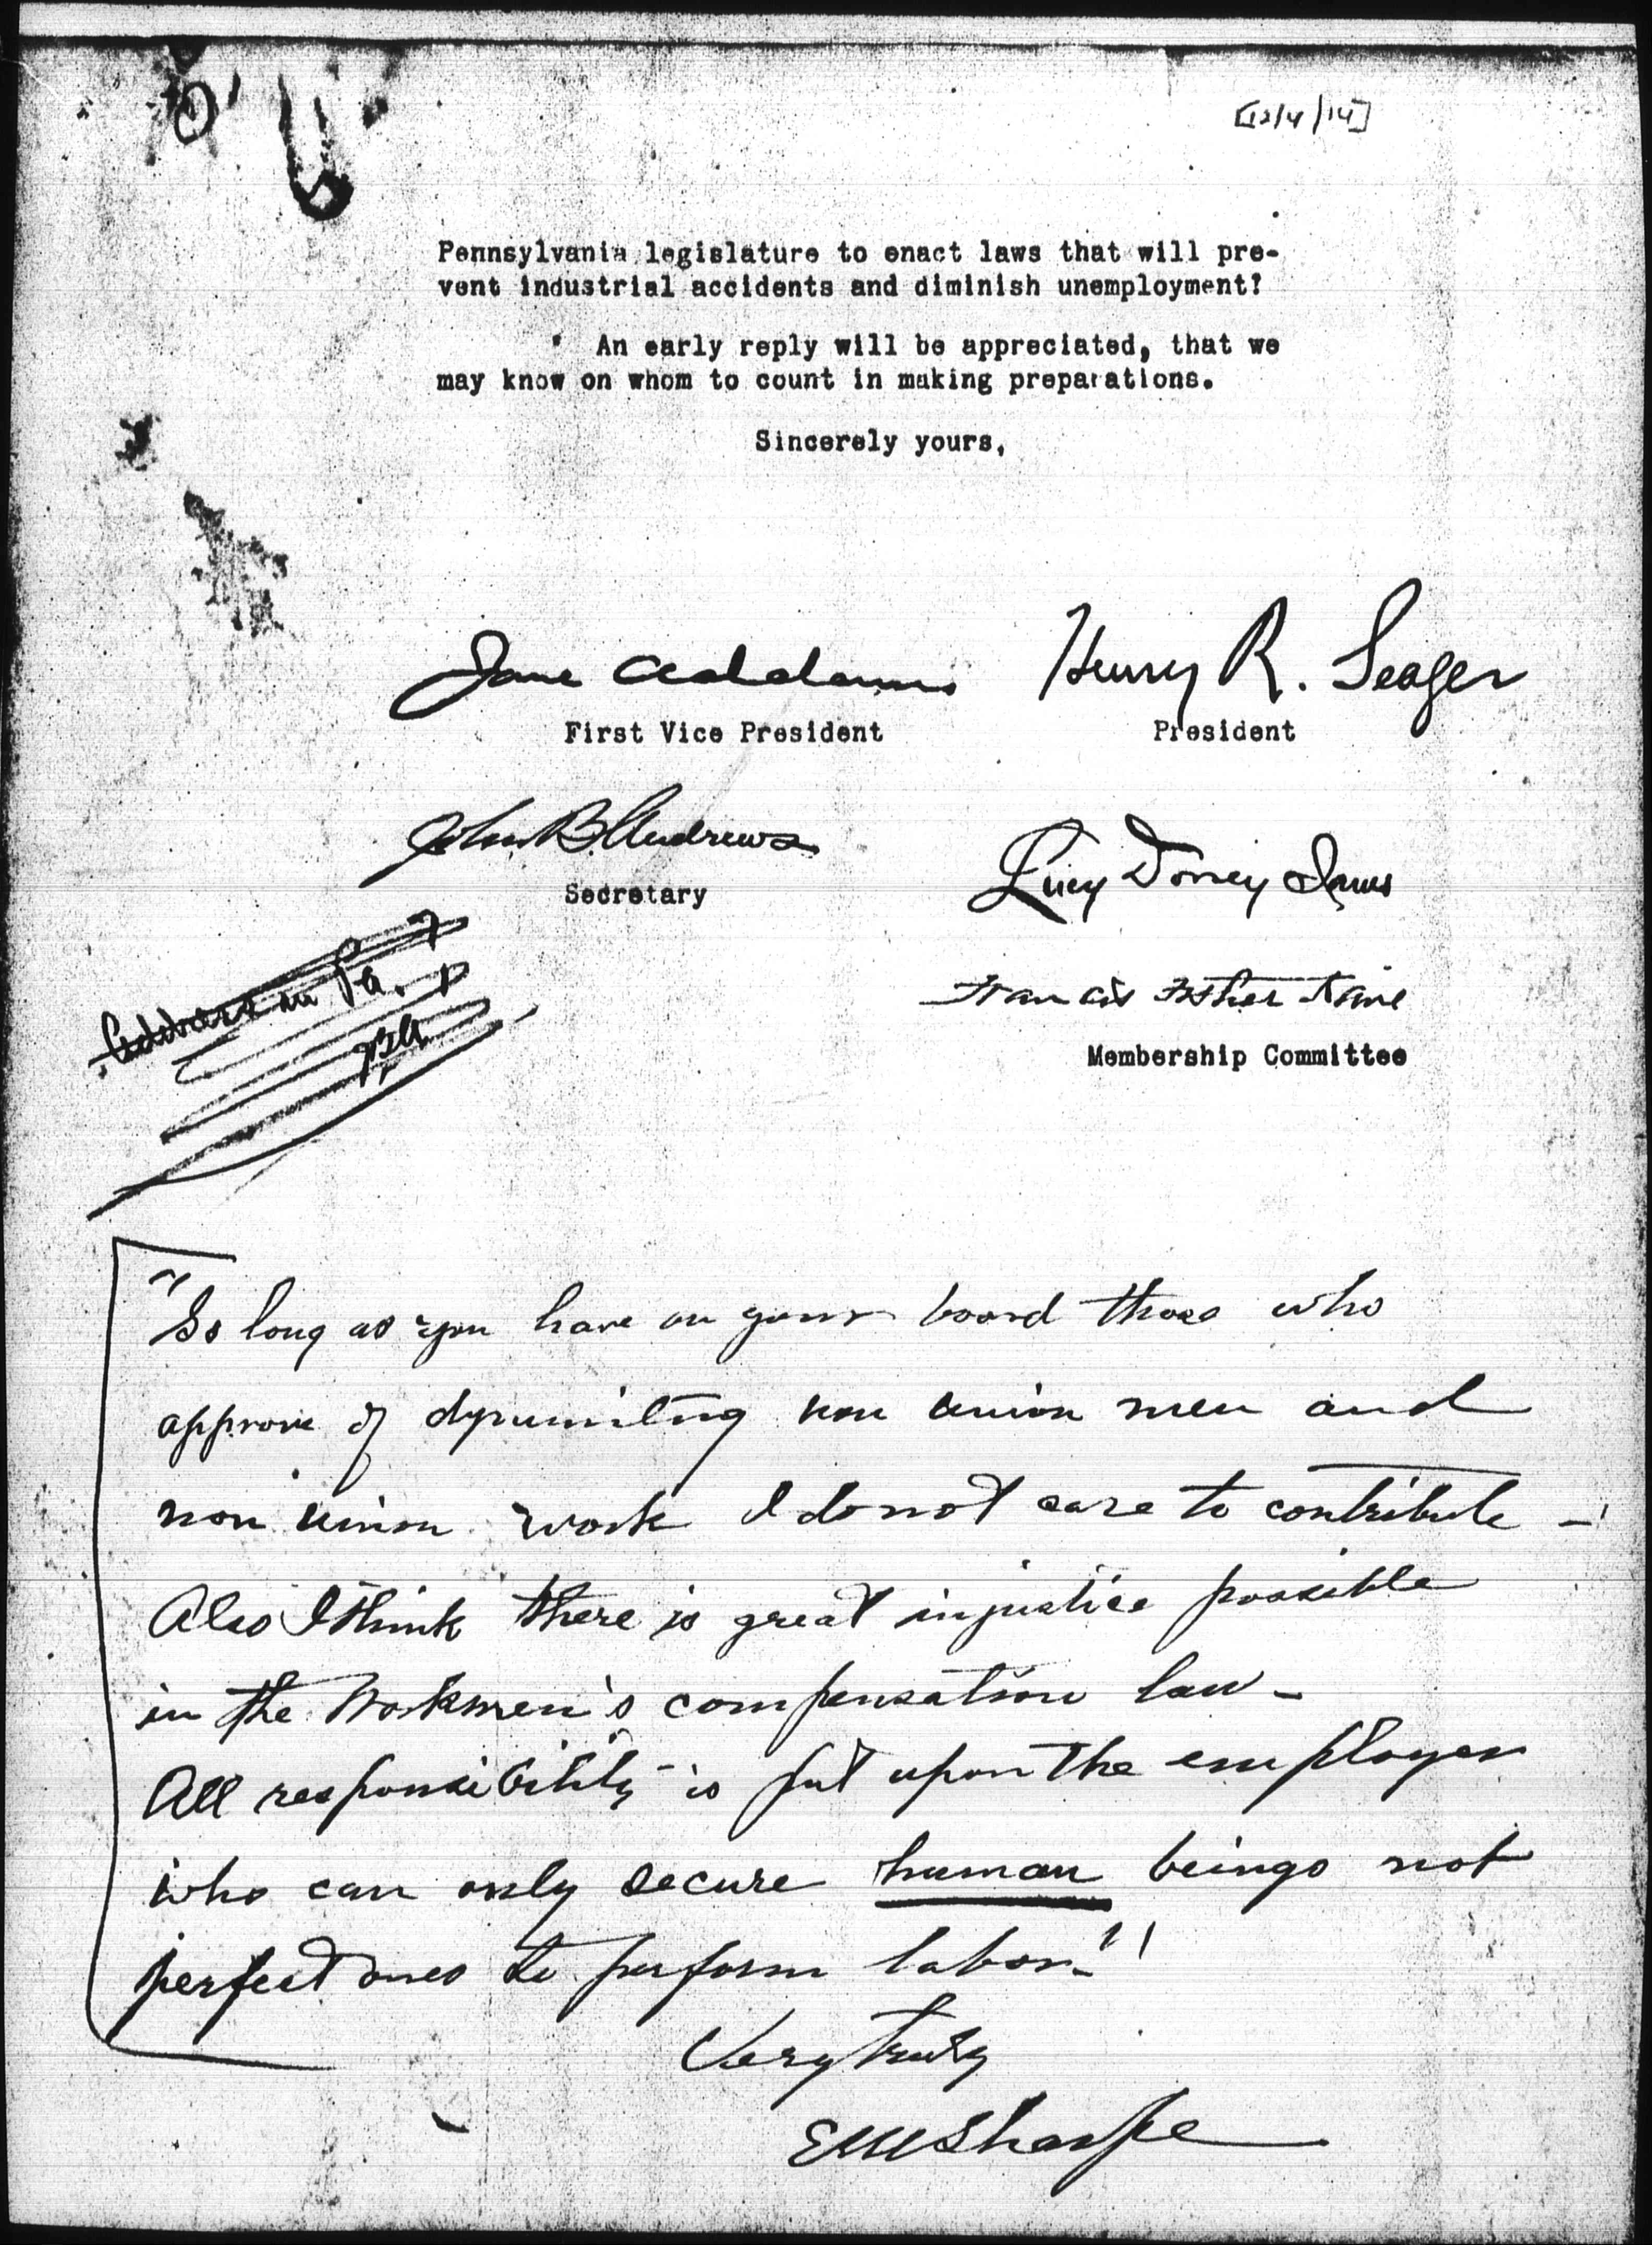 [12/4/14]
Pennsylvania legislature to enact laws that will pre-
vent industrial accidents and diminish unemployment?
An early reply will be appreciated, that we
may know on whom to count in making preparations.
Sincerely yours,
Jane Addams
First Vice President
Henry R. Seager
President
John B. Andrews
Secretary
Lucy Dorsey
Francis Fisher Kane
Membership Committee
in Pa.
"So long as you have on your board those who
approve of dynamiting non union men and
non union work I do not care to contribute –
Also I think there is great injustice possible
in the Workmen's compensation law –
All responsibility is put upon the employer
who can only secure human beings not
perfect ones to perform labor."!
Very truly
EWSharpe